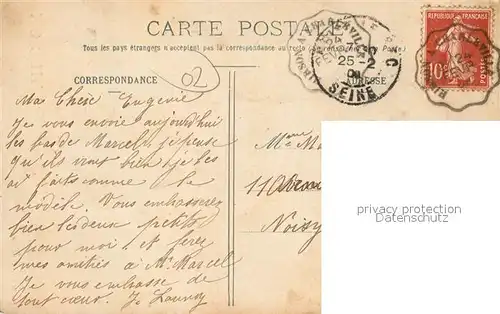 CARTE POSTALE
Tous les pays étrangers n'acceptent pas la correspondance au recto
Poste)
25-2
SEINE
RÉPUBLIQUE FRANÇAISE
10
CORRESPONDANCE
ADRESSE
02
Ma Chère Eugenie
Je vous envoie aujourd'hui
les bas de Marcel, j'espère
qu'ils vont bien je les
ai faits comme le
modèle. Vous embrasserez
bien les deux petits
pour moi et ferez
mes amitiés à Mr Marcel
Je vous embrasse de
tout cœur. J. Launay
Mme Ma
110
Noisy
privacy protection
Datenschutz